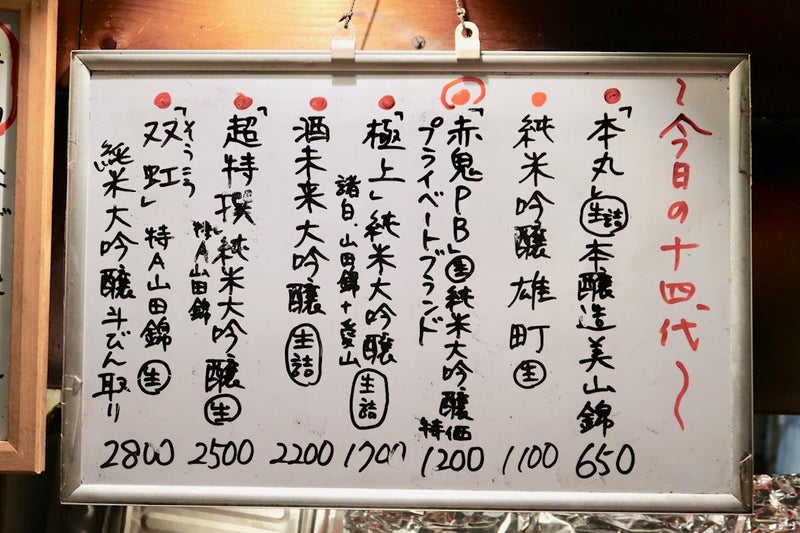 〜今日の十四代〜
「本丸」生詰 本醸造美山錦
650
純米吟醸 雄町 生
1100
「赤鬼PB」生 純米大吟醸 特価
プライベートブランド
1200
「極上」純米大吟醸 生詰
諸白、山田錦+愛山
1700
酒未来大吟醸 生詰
2200
「超特撰」純米大吟醸 生
特A山田錦
2500
「双虹」特A山田錦 生
そうこう
純米大吟醸斗びん取り
2800